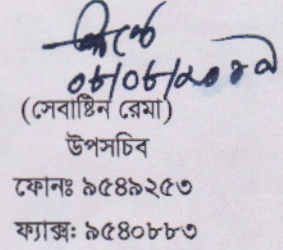 ০৮/০৮/২০১৭
(সেবাষ্টিন রেমা)
উপসচিব
ফোনঃ ৯৫৪৯২৫৩
ফ্যাক্স: ৯৫৪০৮৮৩